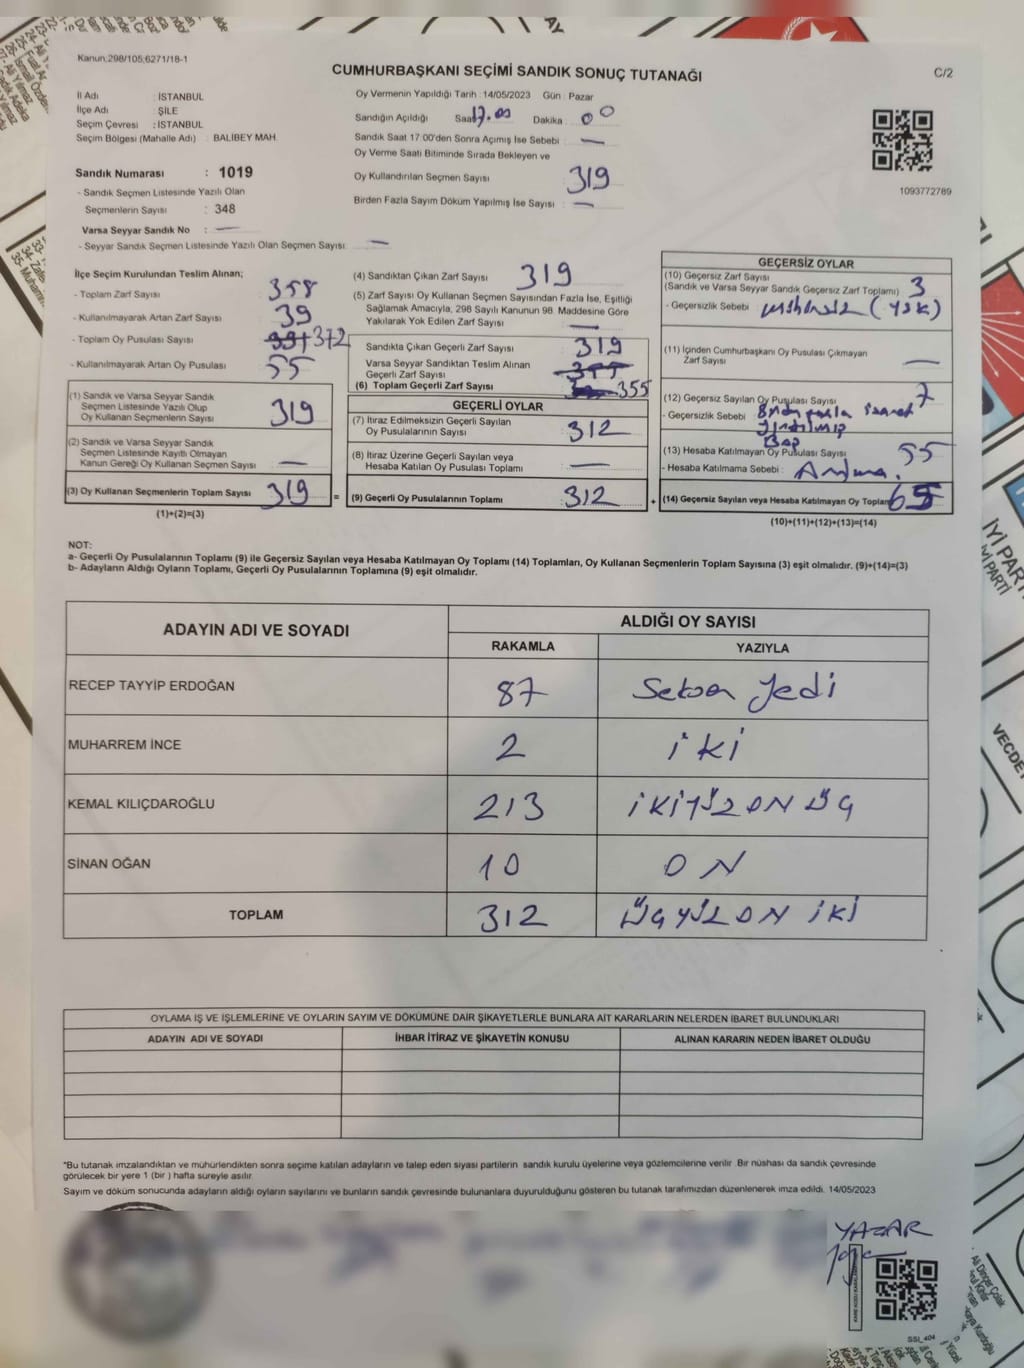 Kanun:298/105;6271/18-1
CUMHURBAŞKANI SEÇİMİ SANDIK SONUÇ TUTANAĞI
C/2
İl Adı : İSTANBUL
İlçe Adı : ŞİLE
Seçim Çevresi : İSTANBUL
Seçim Bölgesi (Mahalle Adı) : BALİBEY MAH.
Sandık Numarası : 1019
- Sandık Seçmen Listesinde Yazılı Olan
Seçmenlerin Sayısı : 348
Varsa Seyyar Sandık No : —
- Seyyar Sandık Seçmen Listesinde Yazılı Olan Seçmen Sayısı: —
Oy Vermenin Yapıldığı Tarih : 14/05/2023 Gün : Pazar
Sandığın Açıldığı Saat 17.00 Dakika : 00
Sandık Saat 17:00'den Sonra Açılmış İse Sebebi : —
Oy Verme Saati Bitiminde Sırada Bekleyen ve
Oy Kullandırılan Seçmen Sayısı : 319
Birden Fazla Sayım Döküm Yapılmış İse Sayısı : —
1093772789
İlçe Seçim Kurulundan Teslim Alınan;
- Toplam Zarf Sayısı : 358
- Kullanılmayarak Artan Zarf Sayısı : 39
- Toplam Oy Pusulası Sayısı : 372
- Kullanılmayarak Artan Oy Pusulası : 55
(1) Sandık ve Varsa Seyyar Sandık
Seçmen Listesinde Yazılı Olup
Oy Kullanan Seçmenlerin Sayısı : 319
(2) Sandık ve Varsa Seyyar Sandık
Seçmen Listesinde Kayıtlı Olmayan
Kanun Gereği Oy Kullanan Seçmen Sayısı : —
(3) Oy Kullanan Seçmenlerin Toplam Sayısı 319
(1)+(2)=(3)
(4) Sandıktan Çıkan Zarf Sayısı 319
(5) Zarf Sayısı Oy Kullanan Seçmen Sayısından Fazla İse, Eşitliği
Sağlamak Amacıyla, 298 Sayılı Kanunun 98. Maddesine Göre
Yakılarak Yok Edilen Zarf Sayısı : —
Sandıkta Çıkan Geçerli Zarf Sayısı : 319
Varsa Seyyar Sandıktan Teslim Alınan
Geçerli Zarf Sayısı
(6) Toplam Geçerli Zarf Sayısı : 355
GEÇERLİ OYLAR
(7) İtiraz Edilmeksizin Geçerli Sayılan
Oy Pusulalarının Sayısı : 312
(8) İtiraz Üzerine Geçerli Sayılan veya
Hesaba Katılan Oy Pusulası Toplamı : —
= (9) Geçerli Oy Pusulalarının Toplamı : 312
GEÇERSİZ OYLAR
(10) Geçersiz Zarf Sayısı
(Sandık ve Varsa Seyyar Sandık Geçersiz Zarf Toplamı) 3
- Geçersizlik Sebebi : mühürsüz (YSK)
(11) İçinden Cumhurbaşkanı Oy Pusulası Çıkmayan
Zarf Sayısı : —
(12) Geçersiz Sayılan Oy Pusulası Sayısı : 7
- Geçersizlik Sebebi : Birden fazla işaret
(13) Hesaba Katılmayan Oy Pusulası Sayısı : 55
- Hesaba Katılmama Sebebi :
+ (14) Geçersiz Sayılan veya Hesaba Katılmayan Oy Toplamı 65
(10)+(11)+(12)+(13)=(14)
NOT:
a- Geçerli Oy Pusulalarının Toplamı (9) ile Geçersiz Sayılan veya Hesaba Katılmayan Oy Toplamı (14) Toplamları, Oy Kullanan Seçmenlerin Toplam Sayısına (3) eşit olmalıdır. (9)+(14)=(3)
b- Adayların Aldığı Oyların Toplamı, Geçerli Oy Pusulalarının Toplamına (9) eşit olmalıdır.
ADAYIN ADI VE SOYADI ALDIĞI OY SAYISI
RAKAMLA YAZIYLA
RECEP TAYYİP ERDOĞAN 87 Seksen Yedi
MUHARREM İNCE 2 İKİ
KEMAL KILIÇDAROĞLU 213 İKİYÜZ ON ÜÇ
SİNAN OĞAN 10 ON
TOPLAM 312 ÜÇYÜZ ON İKİ
OYLAMA İŞ VE İŞLEMLERİNE VE OYLARIN SAYIM VE DÖKÜMÜNE DAİR ŞİKAYETLERLE BUNLARA AİT KARARLARIN NELERDEN İBARET BULUNDUKLARI
ADAYIN ADI VE SOYADI İHBAR İTİRAZ VE ŞİKAYETİN KONUSU ALINAN KARARIN NEDEN İBARET OLDUĞU
*Bu tutanak imzalandıktan ve mühürlendikten sonra seçime katılan adayların ve talep eden siyasi partilerin sandık kurulu üyelerine veya gözlemcilerine verilir. Bir nüshası da sandık çevresinde
görülecek bir yere 1 (bir ) hafta süreyle asılır.
Sayım ve döküm sonucunda adayların aldığı oyların sayılarını ve bunların sandık çevresinde bulunanlara duyurulduğunu gösteren bu tutanak tarafımızdan düzenlenerek imza edildi. 14/05/2023
YAZAR
SSI_404
İYİ PARTİ
İYİ PARTİ
VECDE